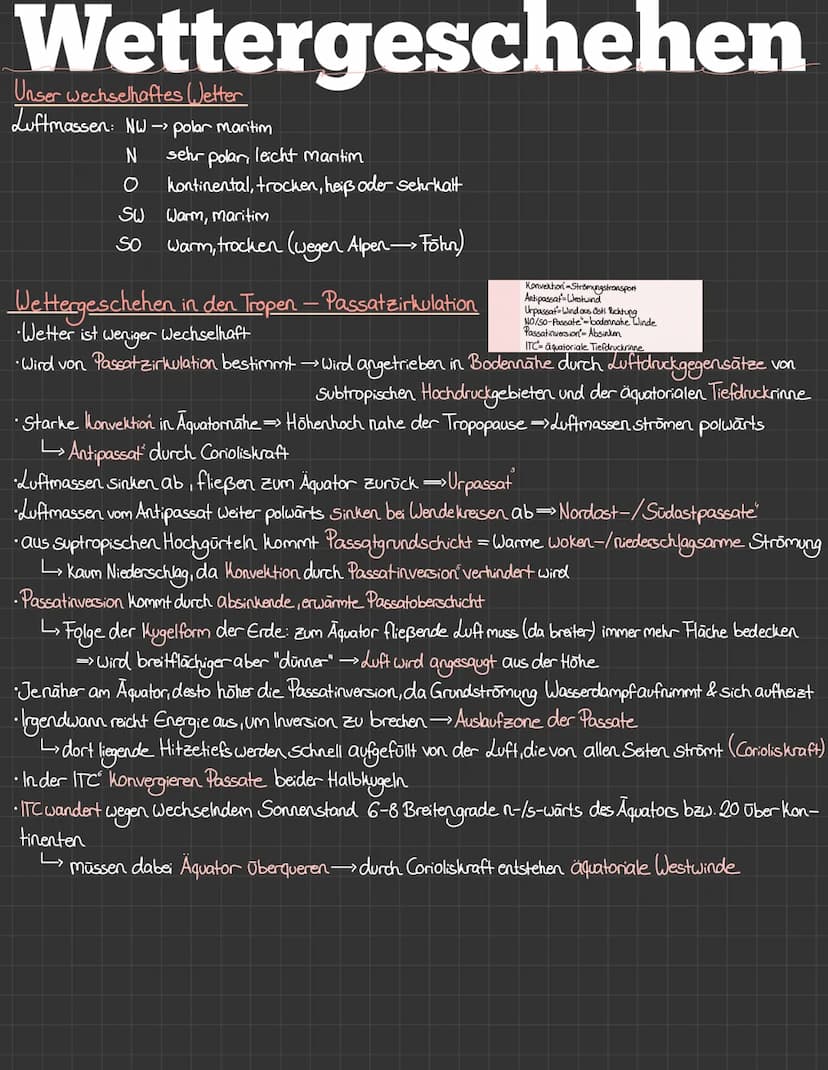 Wettergeschehen
Unser wechselhaftes Wetter
Luftmassen: NW → polar maritim
N sehr polar, leicht maritim
O kontinental, trocken, heiß oder sehr kalt
SW warm, maritim
SO warm, trocken (wegen Alpen → Föhn)
Konvektion¹=Strömungstransport
Antipassat²=Westwind
Urpassat³=Wind aus östl. Richtung
NO/SO-Passate⁴=bodennahe Winde
Passatinversion⁵=Absinken
ITC⁶=äquatoriale Tiefdruckrinne
Wettergeschehen in den Tropen – Passatzirkulation
·Wetter ist weniger wechselhaft
·Wird von Passatzirkulation bestimmt → Wird angetrieben in Bodennähe durch Luftdruckgegensätze von
subtropischen Hochdruckgebieten und der äquatorialen Tiefdruckrinne
·Starke Konvektion¹ in Äquatornähe ⇒ Höhenhoch nahe der Tropopause ⇒ Luftmassen strömen polwärts
↳ Antipassat² durch Corioliskraft
·Luftmassen sinken ab, fließen zum Äquator zurück ⇒ Urpassat³
·Luftmassen vom Antipassat weiter polwärts sinken bei Wendekreisen ab ⇒ Nordost-/Südostpassate⁴
·aus suptropischen Hochgürteln kommt Passatgrundschicht = Warme woken-/niederschlagsarme Strömung
↳ Kaum Niederschlag, da Konvektion durch Passatinversion⁵ verhindert wird
·Passatinversion kommt durch absinkende, erwärmte Passatoberschicht
↳ Folge der Kugelform der Erde: zum Äquator fließende Luft muss (da breiter) immer mehr Fläche bedecken
⇒ wird breitflächiger aber "dünner" → Luft wird angesaugt aus der Höhe
·Je näher am Äquator, desto höher die Passatinversion, da Grundströmung Wasserdampf aufnimmt & sich aufheizt
·Irgendwann reicht Energie aus, um Inversion zu brechen → Auslaufzone der Passate
↳ dort liegende Hitzetiefs werden schnell aufgefüllt von der Luft, die von allen Seiten strömt (Corioliskraft)
·In der ITC⁶ konvergieren Passate beider Halbkugeln
·ITC wandert wegen wechselndem Sonnenstand 6-8 Breitengrade n-/s-wärts des Äquators bzw. 20 über Kon-
tinenten
↳ müssen dabei Äquator überqueren → durch Corioliskraft entstehen äquatoriale Westwinde